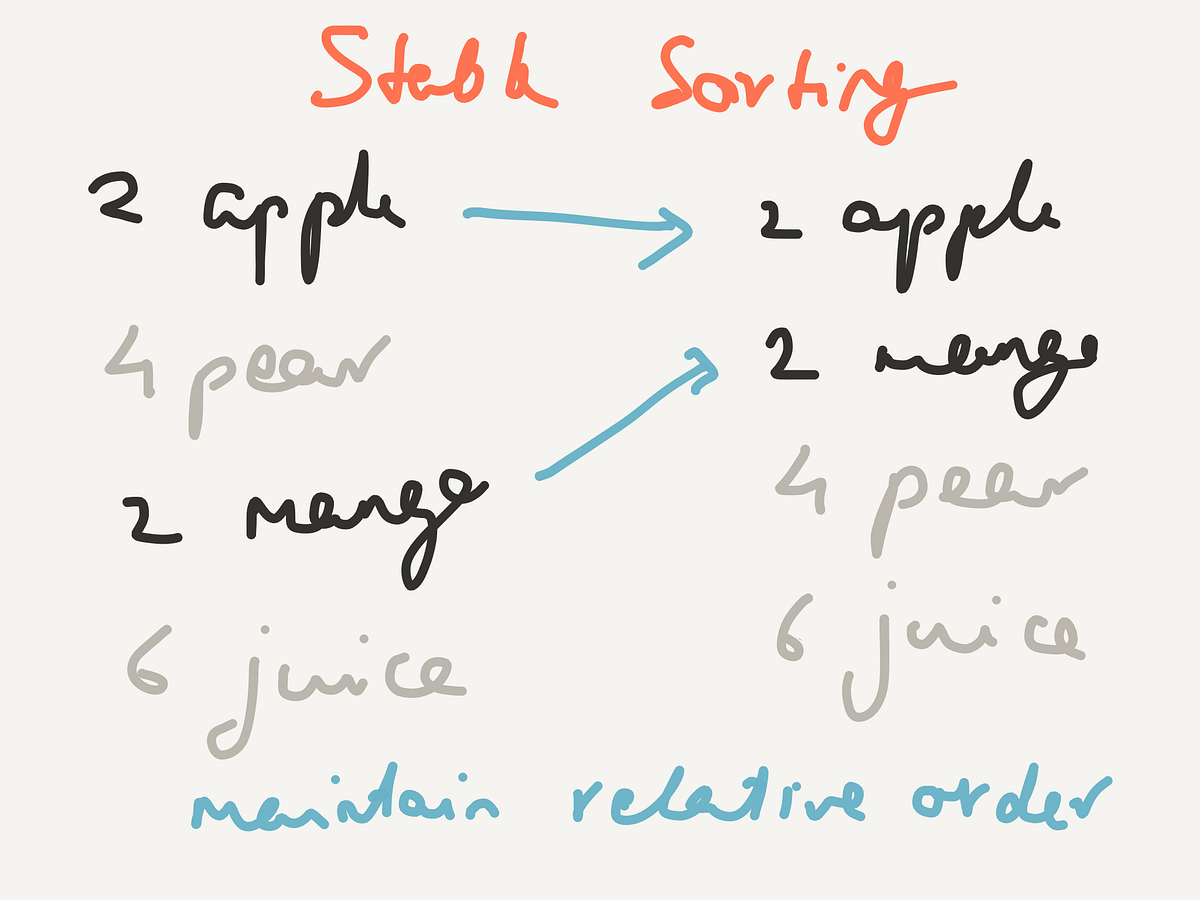 Stable Sorting
2 apple 2 apple
4 pear 2 mango
2 mango 4 pear
6 juice 6 juice
maintain relative order